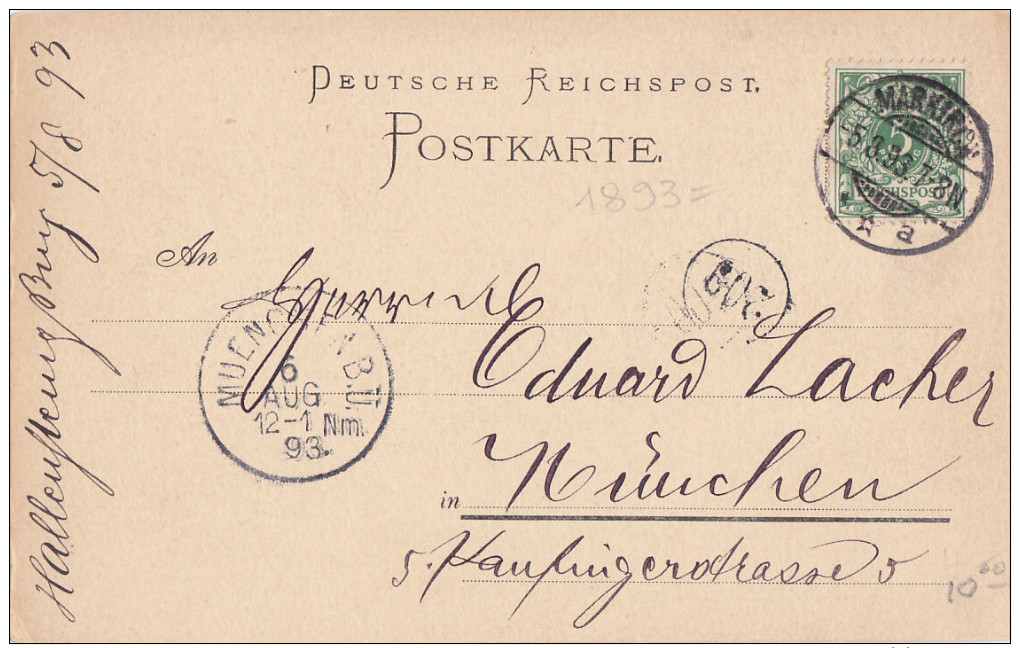 DEUTSCHE REICHSPOST.
POSTKARTE.
1893=
MARKIRCH
5.8.93.7-8N
* a
5
REICHSPOST
An
Herrn
Eduard Lacher
in München
5. Kaufingerstrasse 5
MUENCHEN B.Ü.
6
AUG
12-1 Nm.
93.
10
5/8 93